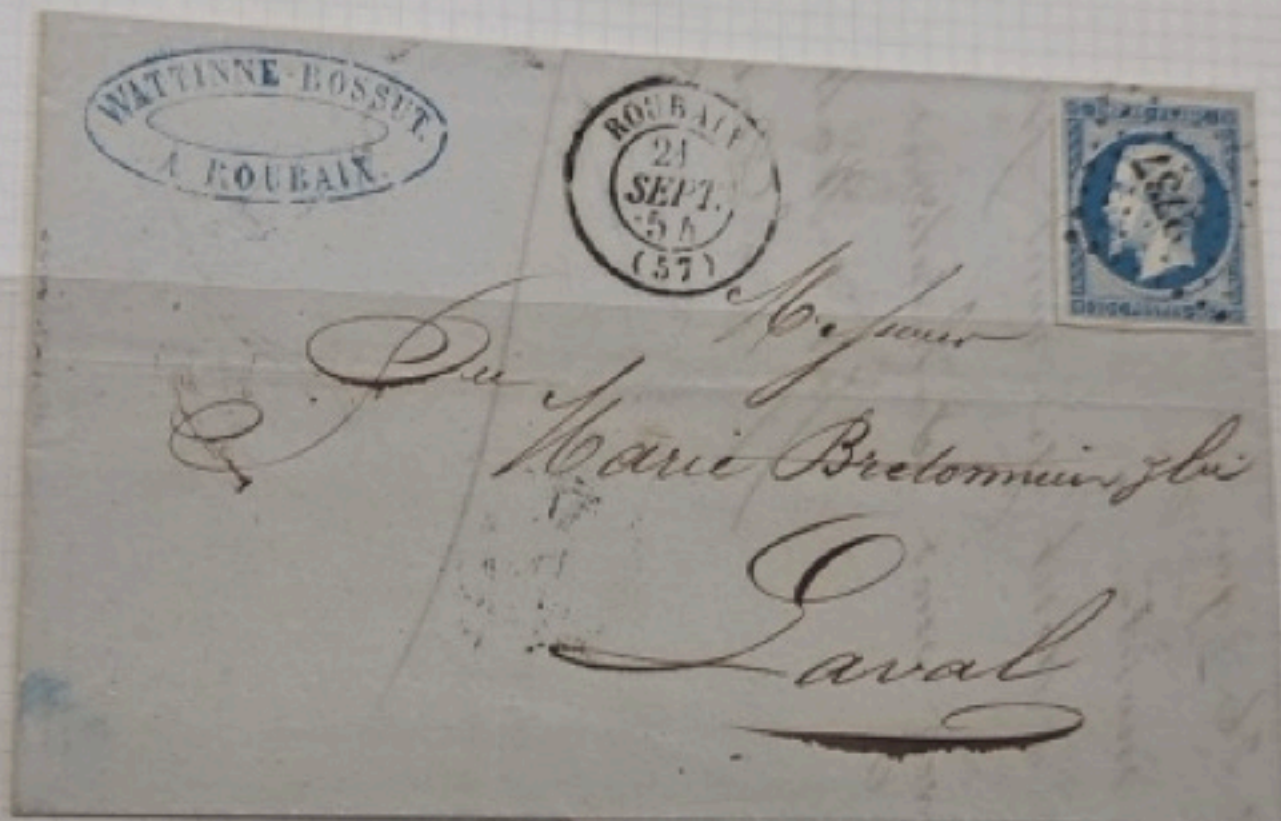 WATTINNE-BOSSUT.
A ROUBAIX.
ROUBAIX
21
SEPT.
54
(57)
Messieurs
Marie Bretonnière
Laval